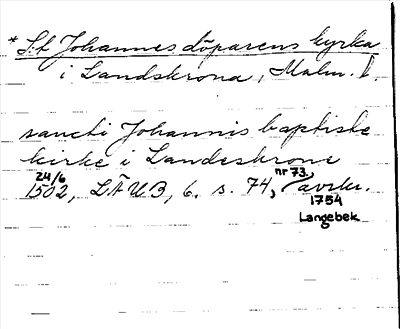 * S:t Johannes döparens kyrka
i Landskrona, Malm. l.
sancti Johannis baptiste
kirke i Landeskrone
24/6 1502, LÄUB, 6. s. 74, nr 73, avskr.
1754
Langebek